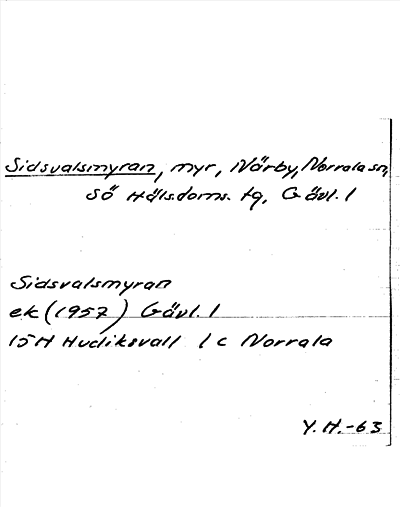 Sidsvalsmyran, myr, Närby, Norrala sn,
Sö Hälsdoms. tg, Gävl. l
Sidsvalsmyran
ek (1957) Gävl. l
15H Hudiksvall 1c Norrala
Y. H. -63